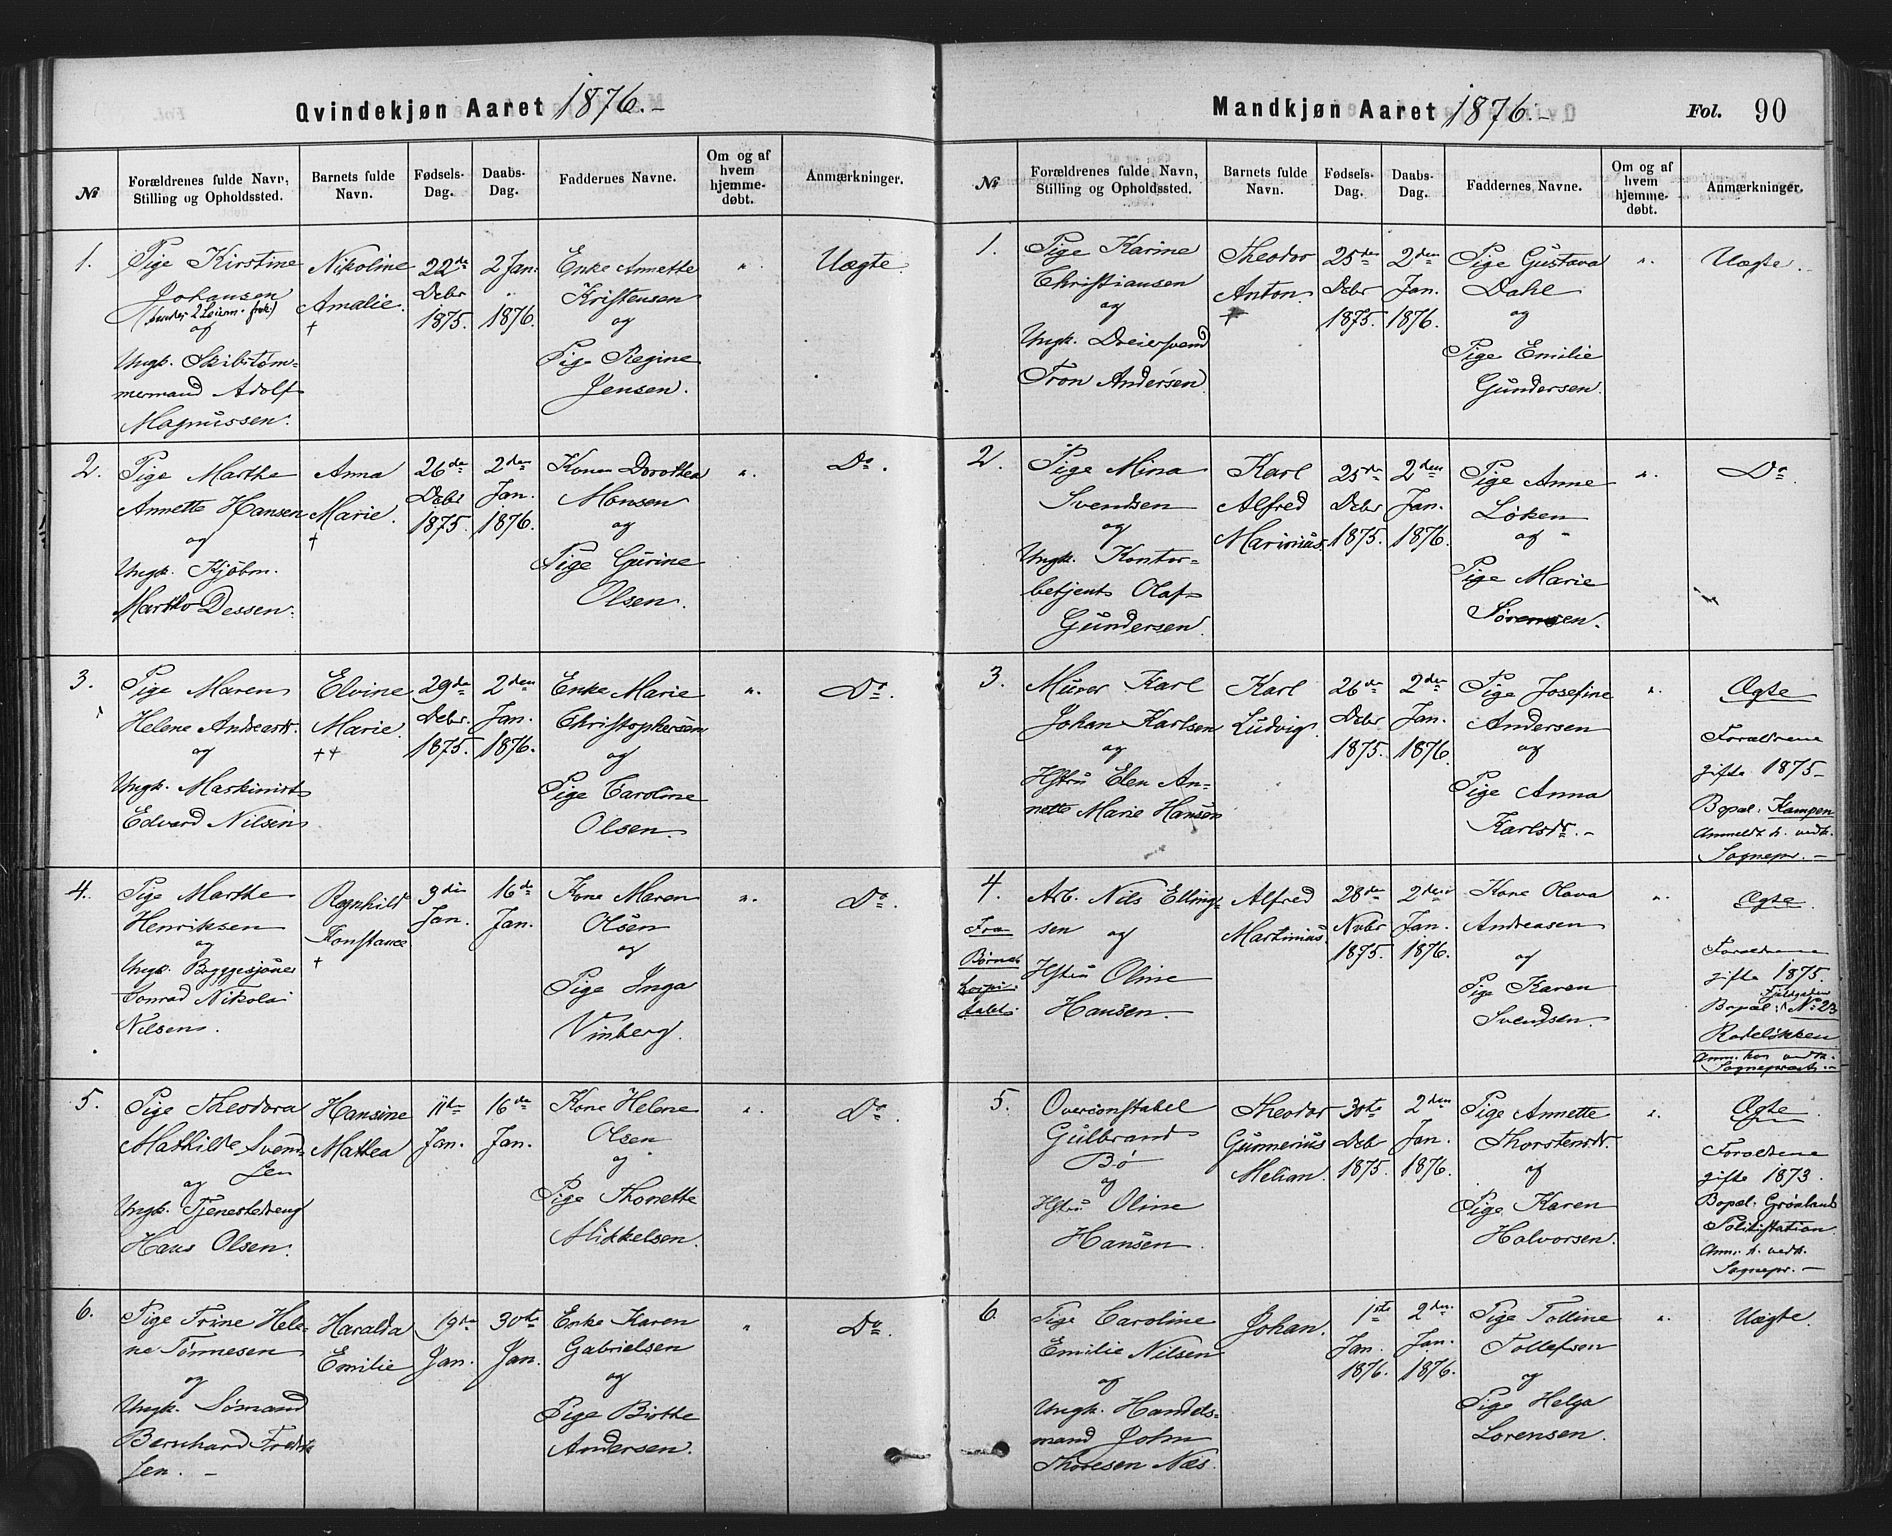 Qvindekjøn Aaret 1876.-
№
Forældrenes fulde Navn, Stilling og Opholdssted.
Barnets fulde Navn.
Fødsels-Dag.
Daabs-Dag.
Faddernes Navne.
Om og af hvem hjemme-døbt.
Anmærkninger.
1.
Pige Kirstine
Johansen
af
Ungk. Skibstøm-
mermand Adolf
Magnussen.
Nikoline
Amalie.
†
22de
Debr
1875.
2 Jan.
1876.
Enke Annette
Kristensen
og
Pige Regine
Jensen.
".
Uægte.
2.
Pige Marthe
Annette Hansen
og
Ungk. Kjøbm.
Dessen.
Anna
Marie.
†
26de
Debr
1875.
2den
Jan.
1876.
Konen Dorothea
Monsen
og
Pige Gurine
Olsen.
".
Do.
3.
Pige Maren
Helene Andreasdr.
og
Ungk. Maskinist
Edvard Nilsen
Elvine
Marie.
††
29de
Debr.
1875.
2den
Jan.
1876.
Enke Marie
Christophersen
og
Pige Caroline
Olsen.
".
Do.
4.
Pige Marthe
Henriksen
og
Ungk.
Conrad Nikolai
Nilsen.
Ragnhild
Konstance
†
9de
Jan.
16de
Jan.
Kone Maren
Olsen
og
Pige Inga
Vinberg.
".
Do.
5.
Pige Theodora
Mathilde Svend-
sen
og
Ungk. Tjenestedreng
Hans Olsen.
Hansine
Mathea
11de
Jan.
16de
Jan.
Kone Helene
Olsen
og
Pige Thonette
Mikkelsen.
".
Do
6.
Pige Trine Hele-
ne Tønnesen
og
Ungk. Sømand
Bernhard Fredrik
sen. -
Haralda
Emilie
19de
Jan.
30te
Jan.
Enke Karen
Gabrielsen
og
Pige Birthe
Andersen.
"
Do.
Mandkjøn Aaret 1876.-
Fol. 90
№
Forældrenes fulde Navn, Stilling og Opholdssted.
Barnets fulde Navn.
Fødsels-Dag.
Daabs-Dag.
Faddernes Navne.
Om og af hvem hjemme-døbt.
Anmærkninger.
1.
Pige Karine
Christiansen
og
Ungk. Dreiersvend
Tron Andersen.
Theodor
Anton
†
25de
Debr
1875.
2den
Jan.
1876.
Pige Gustava
Dahl
og
Pige Emilie
Gundersen.
".
Uægte.
2.
Pige Mina
Svendsen
og
Ungk. Kontor-
betjent Olaf
Gundersen.
Karl
Alfred
Marinius.
25de
Debr
1875.
2den
Jan.
1876.
Pige Anne
Løken
og
Pige Marie
Sørensen.
".
Do.
3.
Murer Karl
Johan Karlsen
og
Hstru Elen An-
nette Marie Hansen
Karl
Ludvig
26de
Debr
1875.
2den
Jan.
1876.
Pige Josefine
Andersen
og
Pige Anna
Karlsdr.-
".
Ægte
Forældrene
gifte 1875-
Bopæl: Kampen
Anmeldt h. vedk.
Sognepr. -
4.
Fra
Børne-
hospi-
talet.
Arb. Nils Elling-
sen og
Hstru Oline
Hansen.
Alfred
Martinius.
28de
Nvbr
1875.
2den
Jan.
1876.
Kone Olava
Andreasen
og
Pige Karen
Svendsen.
".
Ægte.
Forældrene
gifte 1875.
Bopæl: No 23
Rodeløkken
Anm. hos vedk.
Sognepræst. -
5.
Overconstabel
Gulbrand
Bø
og
Hstru Oline
Hansen.
Theodor
Gunnerius
Melian.
30te
Debr
1875.
2den
Jan.
1876.
Pige Annette
Thorstensdr.
og
Pige Karen
Halvorsen.
".
Ægte.
Forældrene
gifte 1873.
Bopæl: Grønlands
Politistation
Anm. h. vedk.
Sognepr. -
6.
Pige Caroline
Emilie Nilsen
og
Ungk. Handels-
mand John
Thoresen Næs.
Johan.
1ste
Jan.
1876.
2den
Jan.
1876.
Pige Tolline
Tollefsen
og
Pige Helga
Lorensen.
".
Uægte.